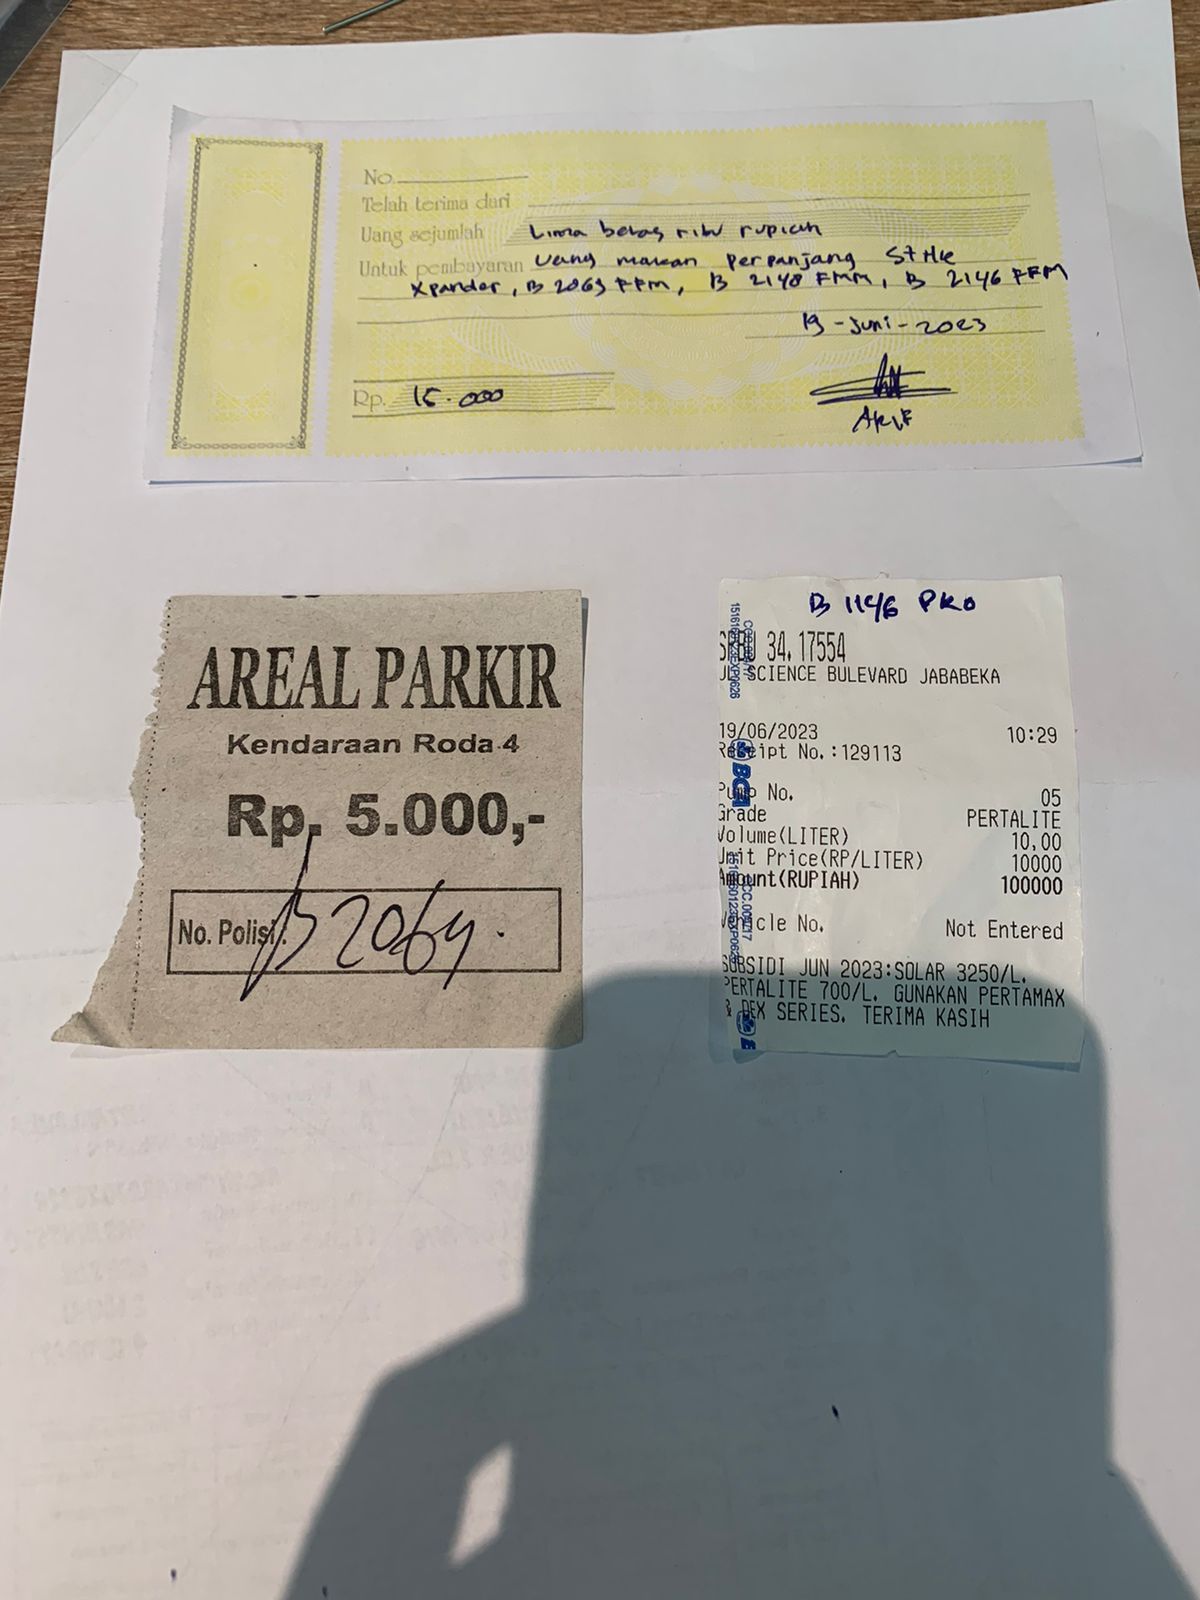 No.
Telah terima dari
Uang sejumlah Lima belas ribu rupiah
Untuk pembayaran Uang makan perpanjang STNK
Xpander, B 2069 FFM, B 2148 FMM, B 2146 FFM
19 - Juni - 2023
Rp. 15.000
AKIF
AREAL PARKIR
Kendaraan Roda 4
Rp. 5.000,-
No. Polisi: B 2064.
B 1146 PKO
SPBU 34.17554
JL. SCIENCE BULEVARD JABABEKA
19/06/2023 10:29
Receipt No.:129113
Pump No. 05
Grade PERTALITE
Volume(LITER) 10,00
Unit Price(RP/LITER) 10000
Amount(RUPIAH) 100000
Vehicle No. Not Entered
SUBSIDI JUN 2023:SOLAR 3250/L.
PERTALITE 700/L. GUNAKAN PERTAMAX
& DEX SERIES. TERIMA KASIH
BCA